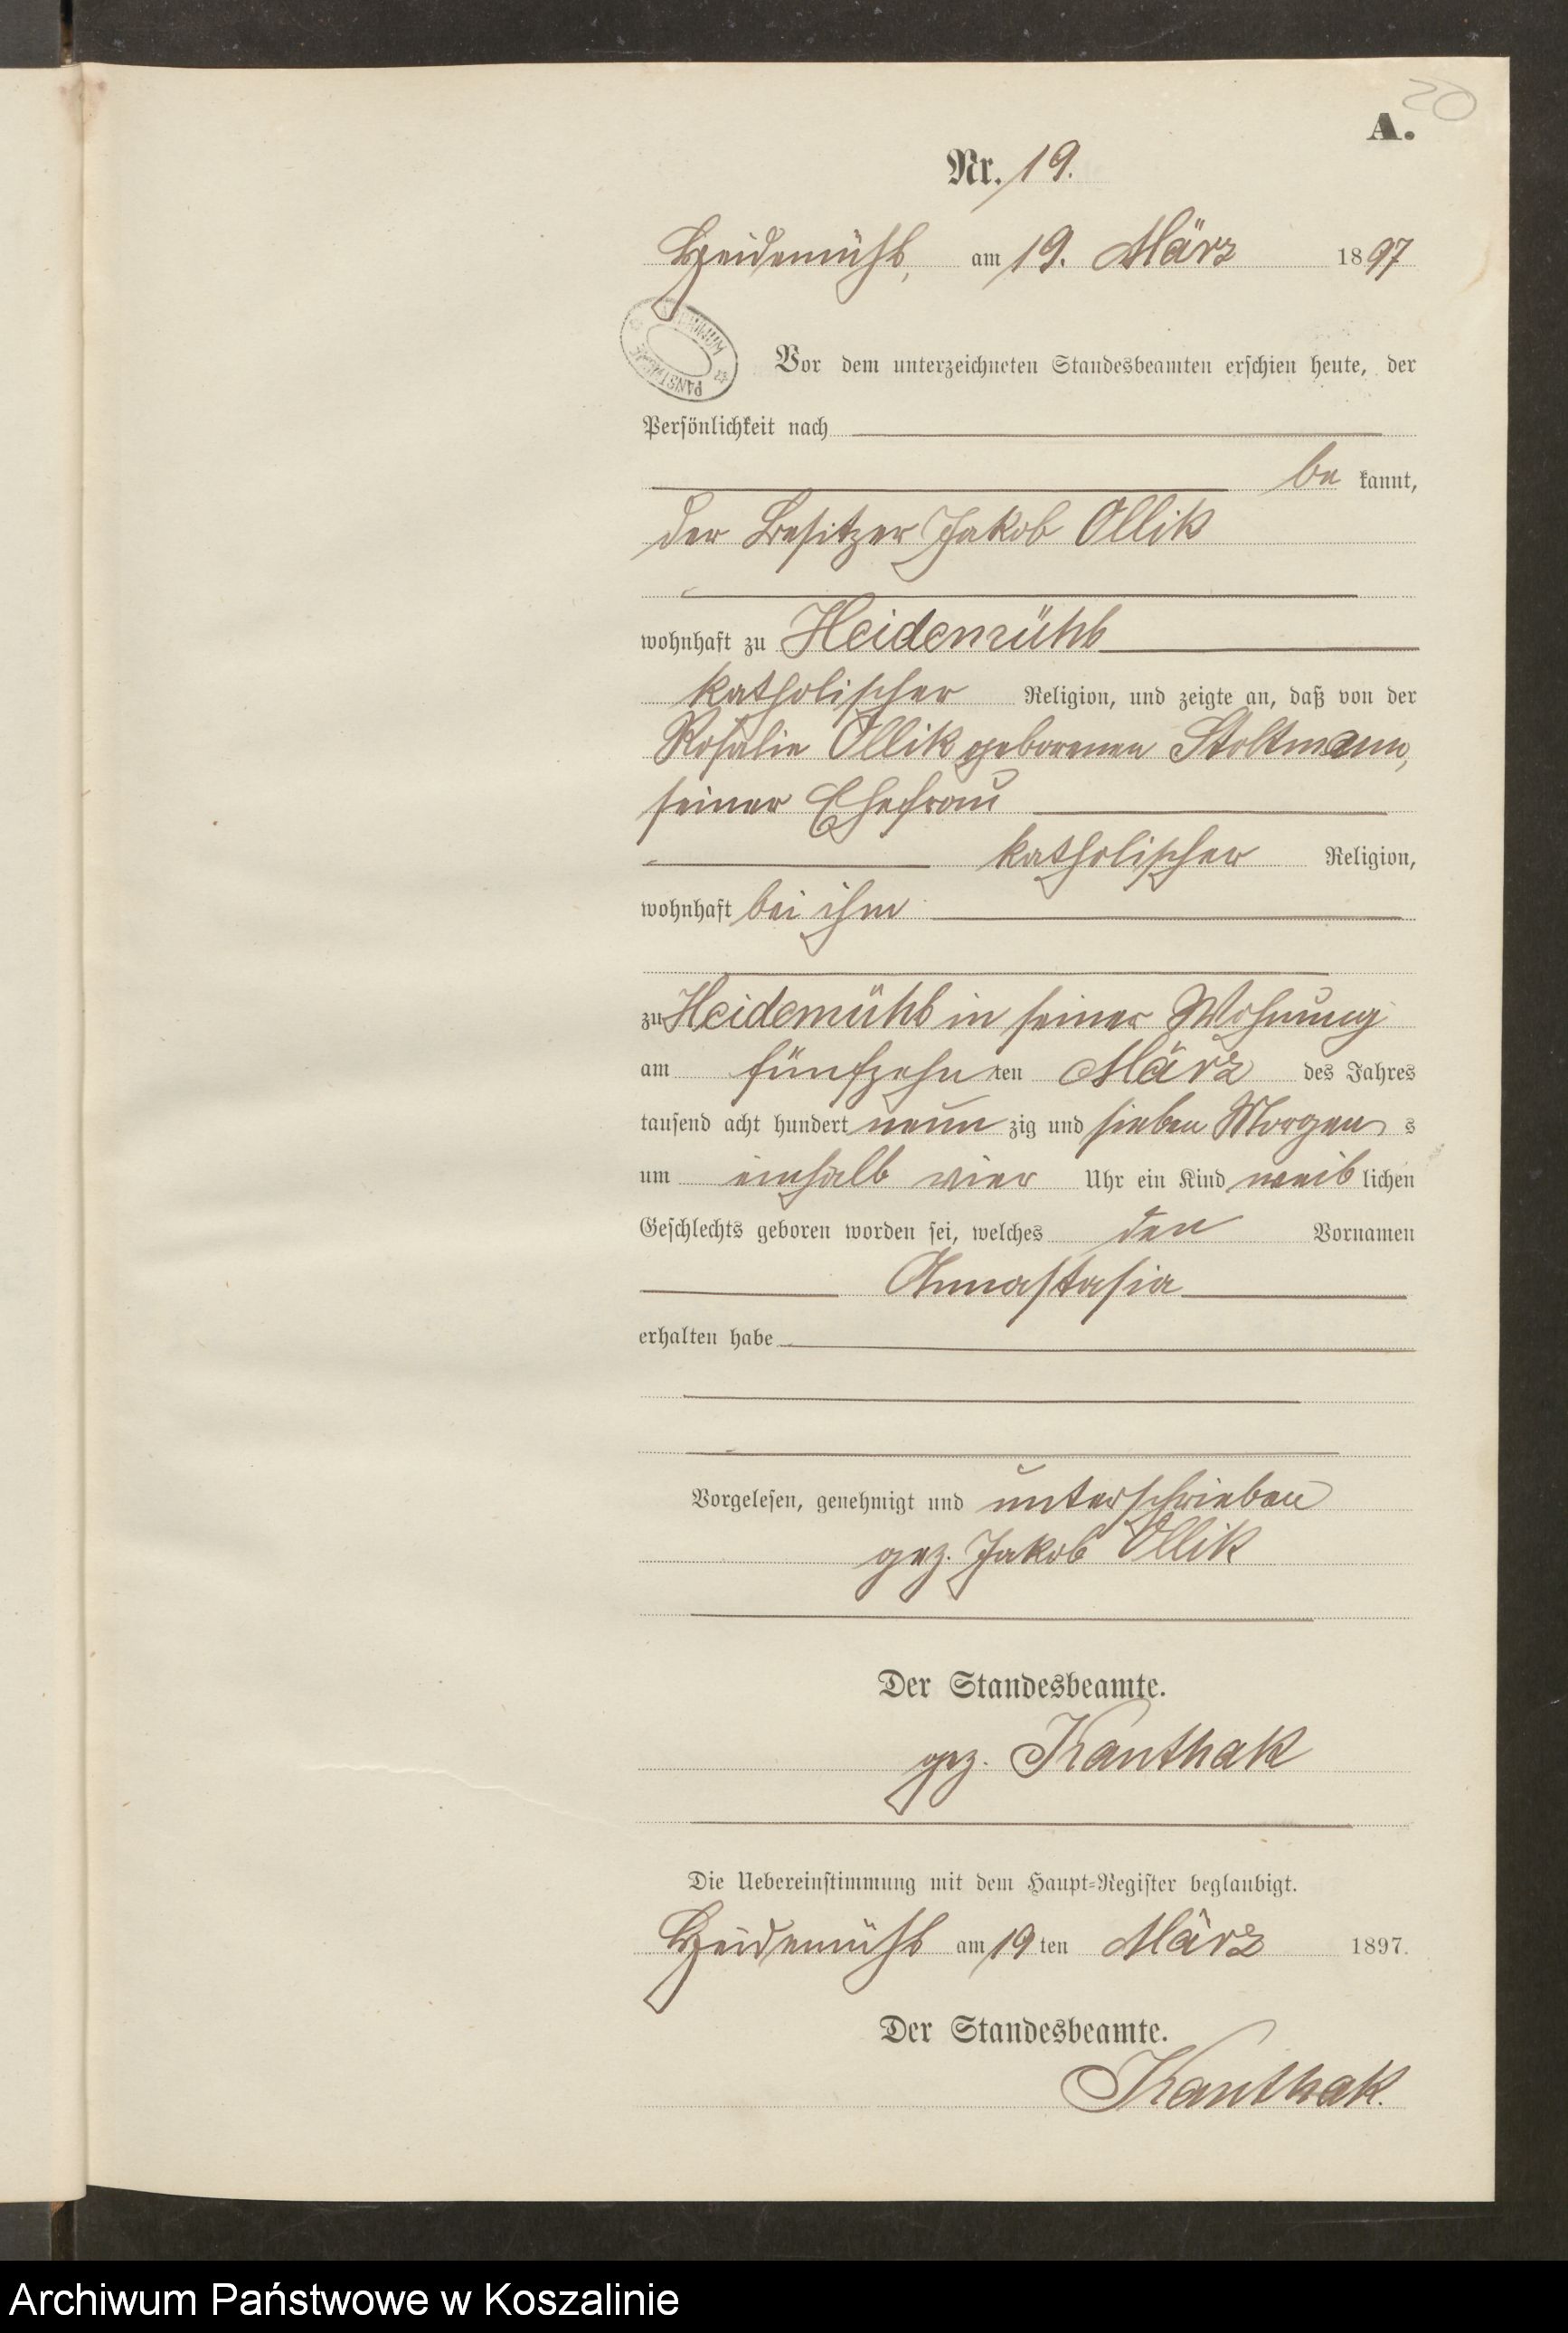 20
A.
Nr. 19.
Heidemühl, am 19. März 1897
PAŃSTWOWE ARCHIWUM
Vor dem unterzeichneten Standesbeamten erschien heute, der
Persönlichkeit nach
be kannt,
der Besitzer Jakob Ollik
wohnhaft zu Heidemühl
katholischer Religion, und zeigte an, daß von der
Rosalie Ollik geborenen Stoltmann,
seiner Ehefrau
katholischer Religion,
wohnhaft bei ihm
zu Heidemühl in seiner Wohnung
am fünfzehn ten März des Jahres
tausend acht hundert neun zig und sieben Morgen s
um einhalb vier Uhr ein Kind weib lichen
Geschlechts geboren worden sei, welches den Vornamen
Annastasia
erhalten habe
Vorgelesen, genehmigt und unterschrieben
gez. Jakob Ollik
Der Standesbeamte.
gez. Kanthak
Die Uebereinstimmung mit dem Haupt-Register beglaubigt.
Heidemühl am 19 ten März 1897.
Der Standesbeamte.
Kanthak.
Archiwum Państwowe w Koszalinie